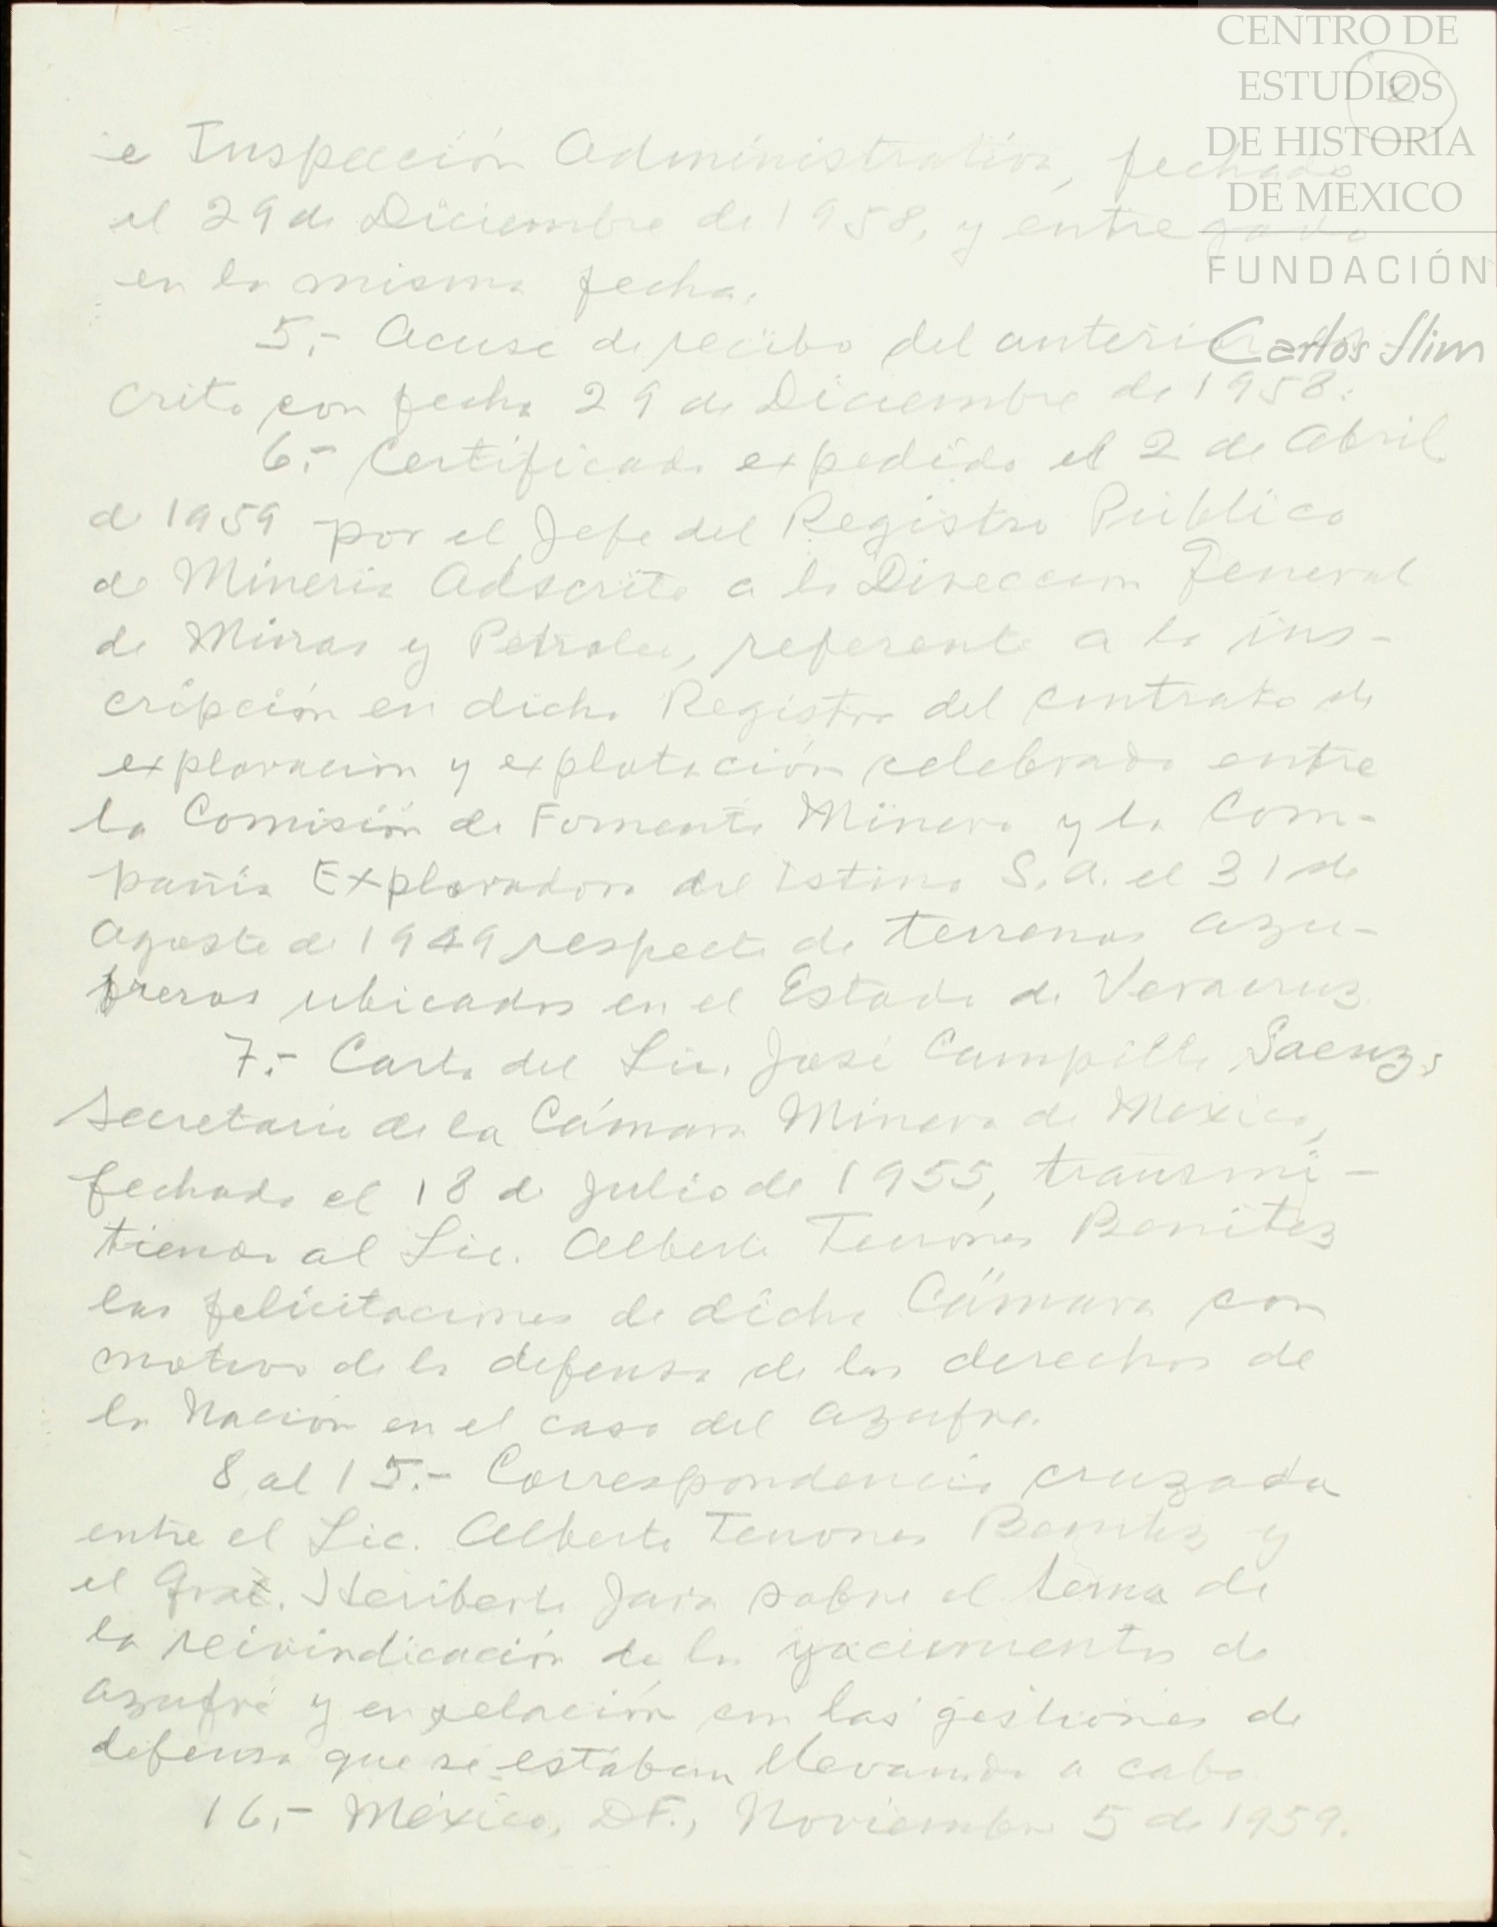 CENTRO DE
ESTUDIOS
DE HISTORIA
DE MEXICO
FUNDACIÓN
Carlos Slim
2
e Inspección Administrativa, fechado
el 29 de Diciembre de 1958, y entregado
en la misma fecha.
5.- Acuse de recibo del anterior es-
crito con fecha 29 de Diciembre de 1958.
6.- Certificado expedido el 2 de Abril
de 1959 por el Jefe del Registro Público
de Mineria Adscrito a la Direccion General
de Minas y Petroleo, referente a la ins-
cripción en dicho Registro del contrato de
exploracion y explotación celebrado entre
la Comisión de Fomento Minero y la Com-
pañia Exploradora del Istmo S.A. el 31 de
Agosto de 1949 respecto de terrenos azu-
freros ubicados en el Estado de Veracruz.
7.- Carta del Lic. José Campillo Saenz,
Secretario de la Cámara Minera de Mexico,
fechada el 18 de Julio de 1955, transmi-
tiendo al Lic. Alberto Terrones Benitez
las felicitaciones de dicha Cámara con
motivo de la defensa de los derechos de
la Nación en el caso del azufre.
8 al 15.- Correspondencia cruzada
entre el Lic. Alberto Terrones Benitez y
el Gral. Heriberto Jara sobre el tema de
la reivindicación de los yacimientos de
azufre y en relación con las gestiones de
defensa que se estaban llevando a cabo
16.- México, D.F., Noviembre 5 de 1959.